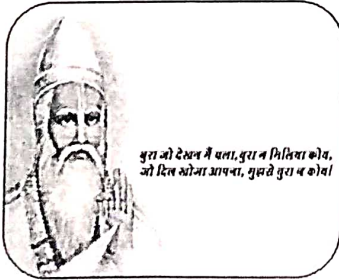 बुरा जो देखन मैं चला, बुरा न मिलिया कोय,
जो दिल खोजा आपना, मुझसे बुरा न कोय।